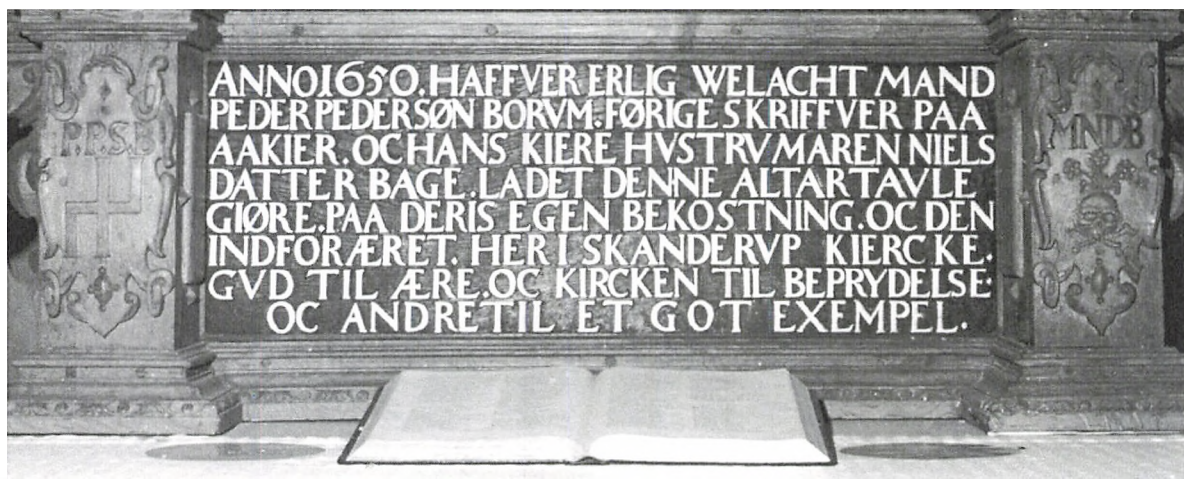 ANNO 1650. HAFFVER ERLIG WELACHT MAND
PEDER PEDERSØN BORVM. FØRIGE SKRIFFVER PAA
AAKIER. OC HANS KIERE HVSTRV MAREN NIELS
DATTER BAGE. LADET DENNE ALTARTAVLE
GIØRE. PAA DERIS EGEN BEKOSTNING. OC DEN
INDFORÆRET. HER I SKANDERVP KIERCKE.
GVD TIL ÆRE. OC KIRCKEN TIL BEPRYDELSE.
OC ANDRE TIL ET GOT EXEMPEL.
P.P.S.B
MNDB